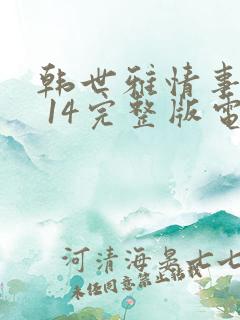 韩世雅情事
14完整版电
河清海晏七七
未经同意禁止转载